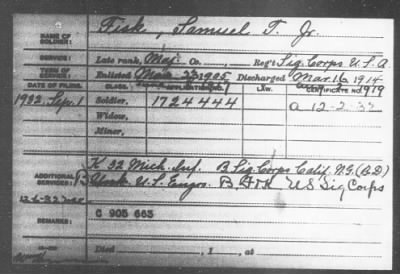 NAME OF SOLDIER: Fisk, Samuel T. Jr.
SERVICE: Late rank, Maj. Co. , Reg't Sig. Corps U.S.A
TERM OF SERVICE: Enlisted 1905 Discharged Mar. 16, 1914
DATE OF FILING. CLASS. APPLICATION NO. LAW. CERTIFICATE NO. 1919
1932 Sep. 1 Soldier, 1724444 a 12-2-32
Widow,
Minor,
K 32 Mich. Inf. B Sig. Corps Calif. N.G. (B D)
ADDITIONAL SERVICES: U.S. Engrs. B, H & K US Sig Corps
REMARKS: C 905 663
Died , 1 , at